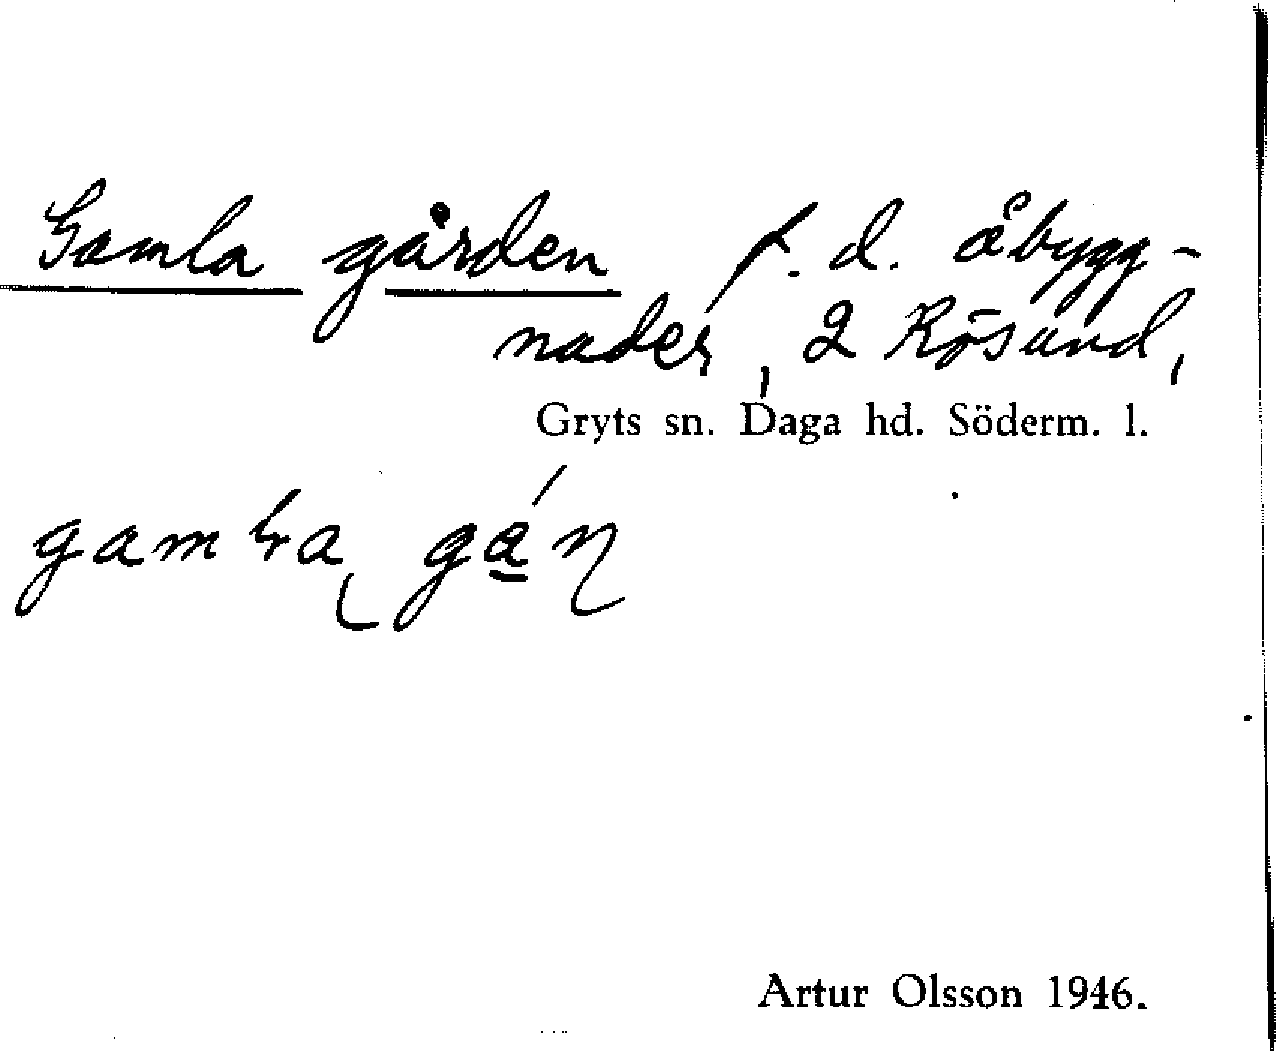 Gamla gården f. d. åbygg-
nader, 2 Rösund,
Gryts sn. Daga hd. Söderm. l.
Artur Olsson 1946.